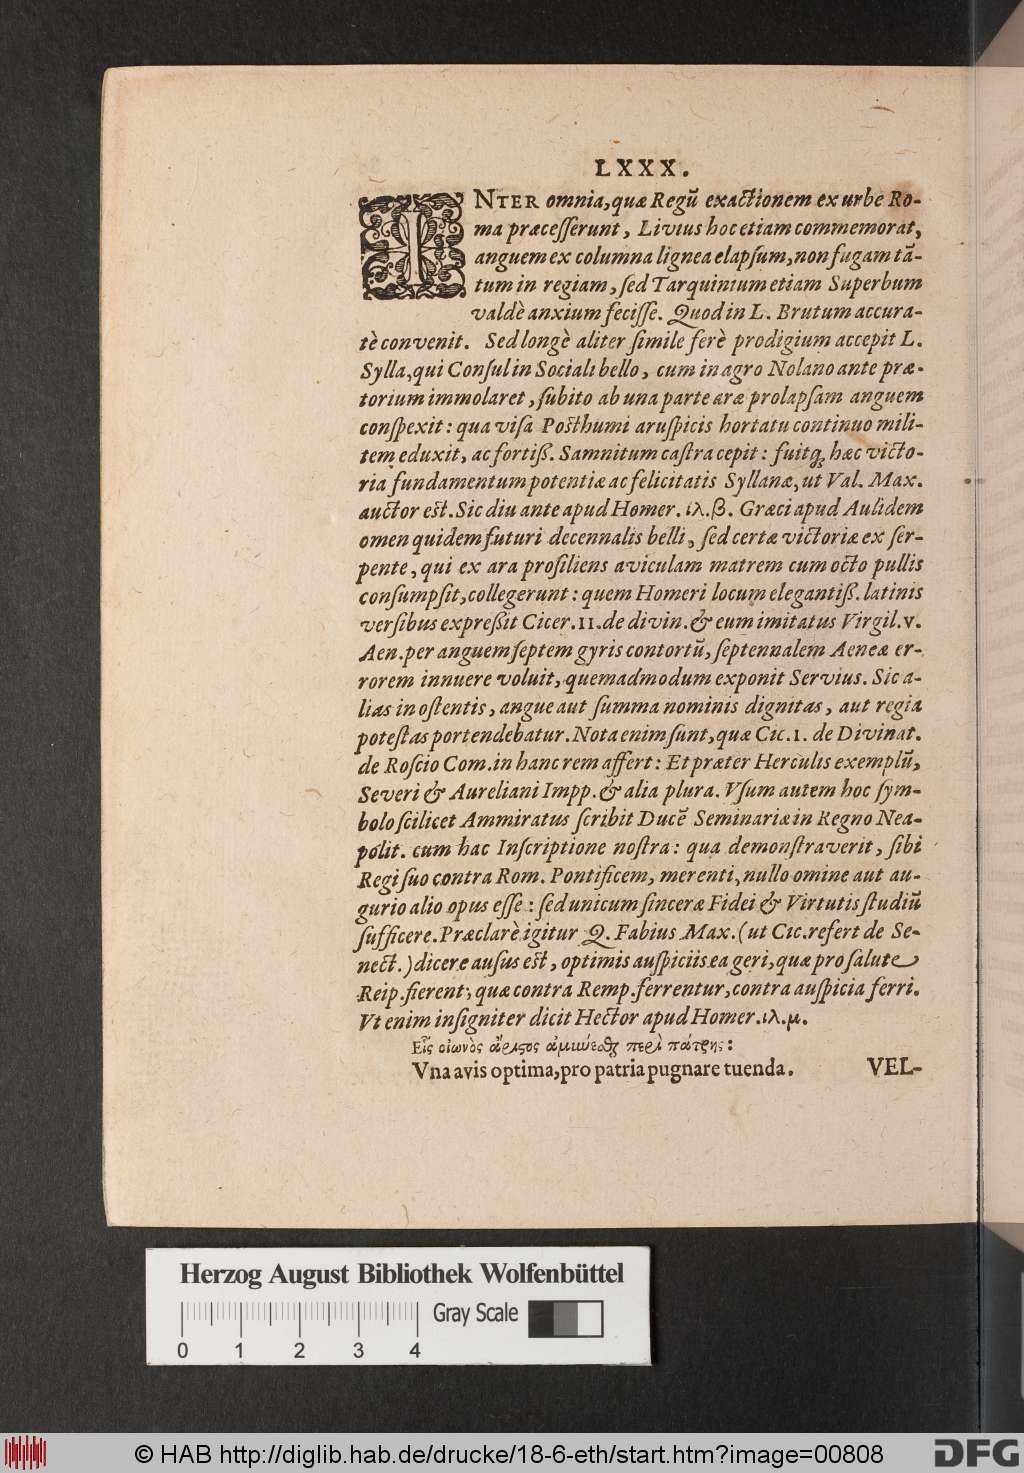 LXXX.
INTER omnia, quæ Regũ exactionem ex urbe Ro-
ma præcesserunt, Livius hoc etiam commemorat,
anguem ex columna lignea elapsum, non fugam tã-
tum in regiam, sed Tarquinium etiam Superbum
valdè anxium fecisse. Quod in L. Brutum accura-
tè convenit. Sed longè aliter simile ferè prodigium accepit L.
Sylla, qui Consul in Sociali bello, cum in agro Nolano ante præ-
torium immolaret, subito ab una parte aræ prolapsam anguem
conspexit: qua visa Posthumi aruspicis hortatu continuo mili-
tem eduxit, ac fortiß. Samnitum castra cepit: fuitq; hæc victo-
ria fundamentum potentiæ ac felicitatis Syllanæ, ut Val. Max.
auctor est. Sic diu ante apud Homer. ιλ. β. Græci apud Aulidem
omen quidem futuri decennalis belli, sed certæ victoriæ ex ser-
pente, qui ex ara prosiliens aviculam matrem cum octo pullis
consumpsit, collegerunt: quem Homeri locum elegantiß. latinis
versibus expreßit Cicer. II. de divin. & eum imitatus Virgil. v.
Aen. per anguem septem gyris contortũ, septennalem Aeneæ er-
rorem innuere voluit, quemadmodum exponit Servius. Sic a-
lias in ostentis, angue aut summa nominis dignitas, aut regia
potestas portendebatur. Nota enim sunt, quæ Cic. I. de Divinat.
de Roscio Com. in hanc rem affert: Et præter Herculis exemplũ,
Severi & Aureliani Impp. & alia plura. Vsum autem hoc sym-
bolo scilicet Ammiratus scribit Ducẽ Seminariæ in Regno Nea-
polit. cum hac Inscriptione nostra: qua demonstraverit, sibi
Regi suo contra Rom. Pontificem, merenti, nullo omine aut au-
gurio alio opus esse: sed unicum sinceræ Fidei & Virtutis studiũ
sufficere. Præclarè igitur Q. Fabius Max. (ut Cic. refert de Se-
nect.) dicere ausus est, optimis auspiciis ea geri, quæ pro salute
Reip. fierent, quæ contra Remp. ferrentur, contra auspicia ferri.
Vt enim insigniter dicit Hector apud Homer. ιλ. μ.
Εἷς οἰωνὸς ἄριστος ἀμύνεσθαι περὶ πάτρης:
Vna avis optima, pro patria pugnare tuenda. VEL-
Herzog August Bibliothek Wolfenbüttel
Gray Scale
0 1 2 3 4
© HAB http://diglib.hab.de/drucke/18-6-eth/start.htm?image=00808
DFG